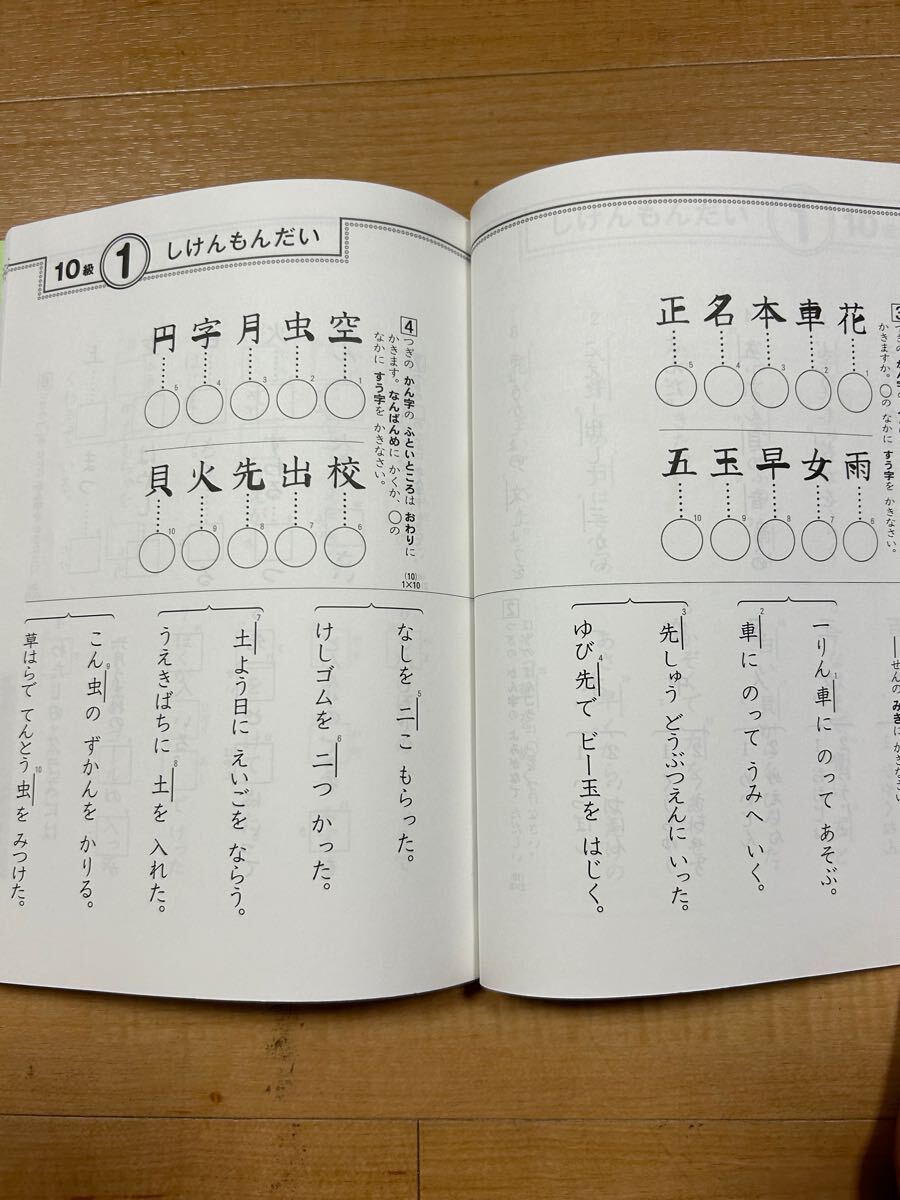 花
車
本
名
正
1
2
3
4
5
雨
女
早
玉
五
6
7
8
9
10
かきますか。○の
なかに すう字を かきなさい。
せんの みぎに かきなさい
一りん車に のって あそぶ。
1
車に のって うみへ いく。
2
先しゅう どうぶつえんに いった。
3
ゆび先で ビー玉を はじく。
4
10級 1 しけんもんだい
4
つぎの かん字の ふといところは おわりに
かきます。なんばんめに かくか、○の
なかに すう字を かきなさい。
(10)
1×10
空
虫
月
字
円
1
2
3
4
5
校
出
先
火
貝
6
7
8
9
10
なしを 二こ もらった。
5
けしゴムを 二つ かった。
6
土よう日に えいごを ならう。
7
うえきばちに 土を 入れた。
8
こん虫の ずかんを かりる。
9
草はらで てんとう虫を みつけた。
10